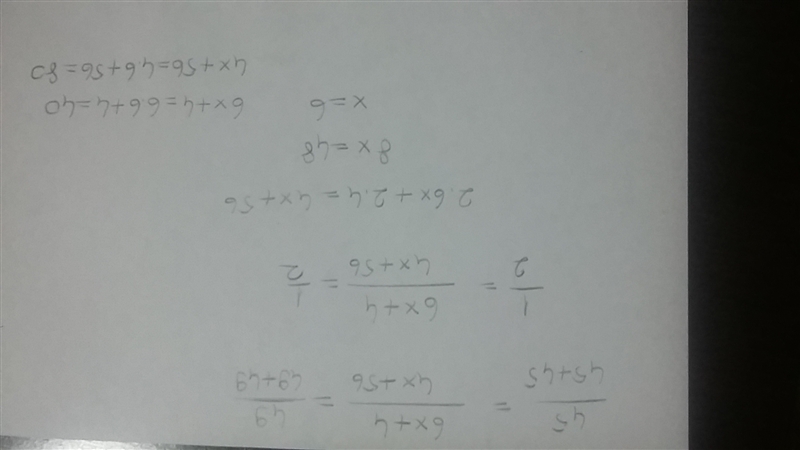 45/45+45 = 6x+4/4x+56 = 49/49+49
1/2 = 6x+4/4x+56 = 1/2
2.6x+2.4=4x+56
8x=48
x=6
6x+4=66+4=40
4x+56=4.6+56=80